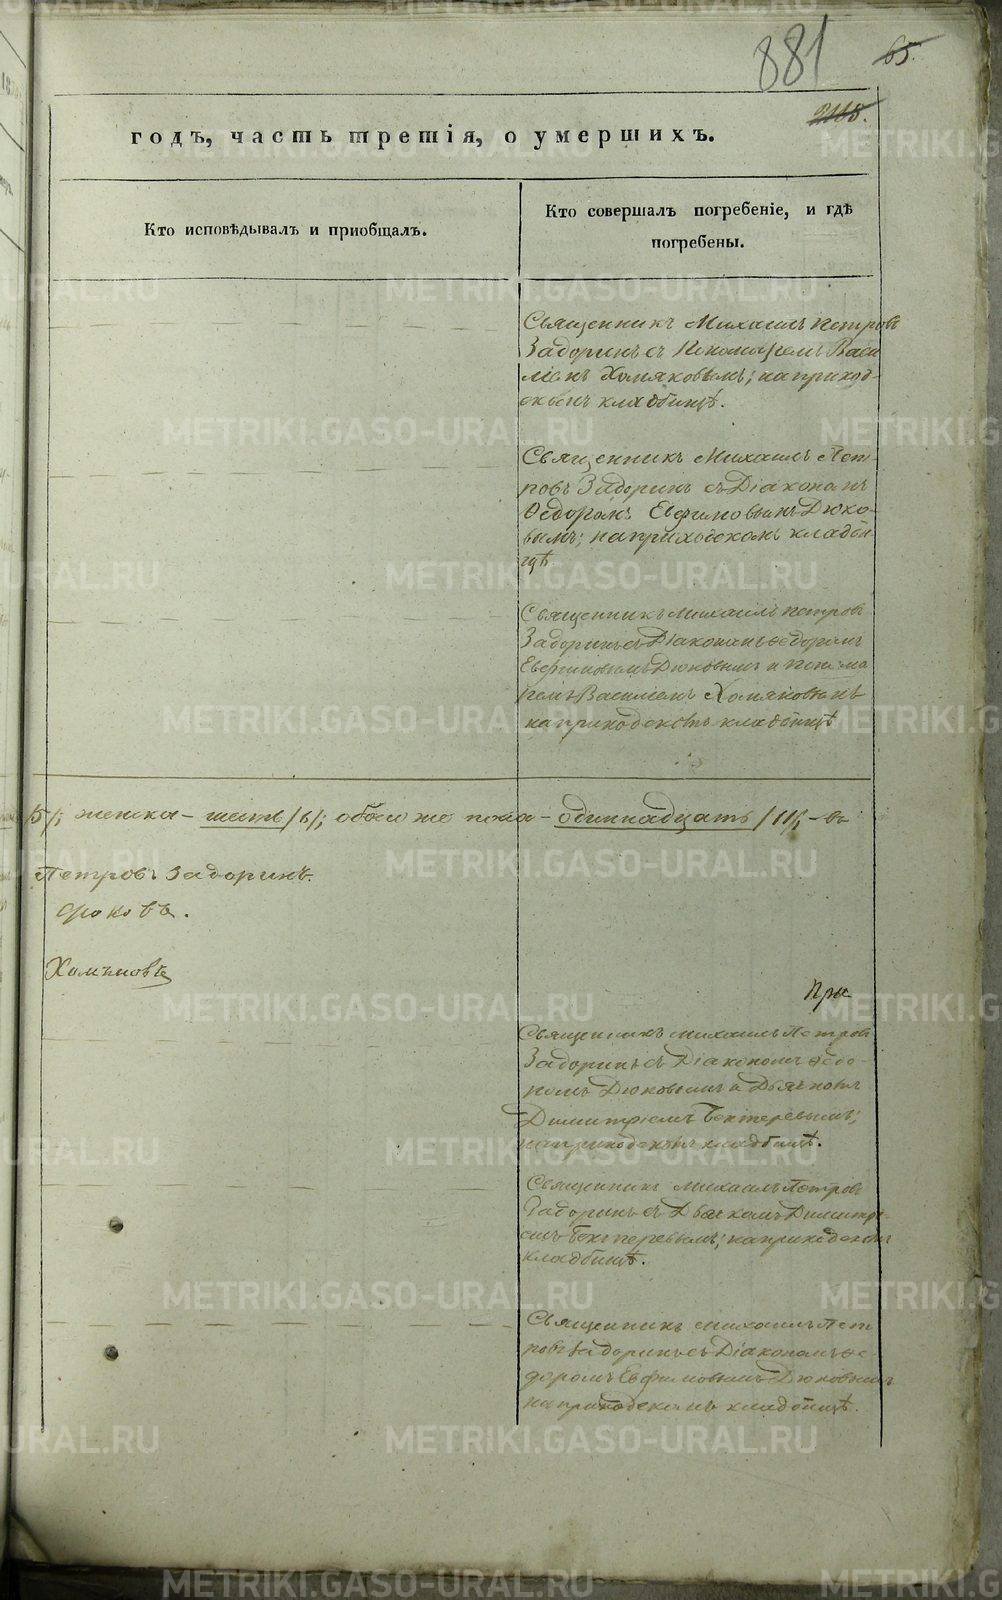 881
65.
2118.
годъ, часть третія, о умершихъ.
Кто исповѣдывалъ и пріобщалъ.
Кто совершалъ погребеніе, и гдѣ
погребены.
Священникъ Михаилъ Петровъ
Задоринъ съ Пономаремъ Васи
ліемъ Хомяковымъ; на приход-
скомъ кладбищѣ.
Священникъ Михаилъ Пет-
ровъ Задоринъ съ Діакономъ
Ѳедоромъ Евфимовымъ Дюко-
вымъ; на приходскомъ кладби-
щѣ.
Священникъ Михаилъ Петровъ
Задоринъ съ Діакономъ Ѳедоромъ
Евфимовымъ Дюковымъ и Понома
ремъ Василіемъ Хомяковымъ
на приходскомъ кладбищѣ
/5/; женска – шесть /6/; обоего же пола – одиннадцать /11/; – въ
Петровъ Задоринъ.
Дюковъ.
Хомяковъ
При
Священникъ Михаилъ Петровъ
Задоринъ съ Діакономъ Ѳедо-
ромъ Дюковымъ и Дьячкомъ
Димитріемъ Бехтеревымъ;
на приходскомъ кладбищѣ.
Священникъ Михаилъ Петровъ
Задоринъ съ Дьячкомъ Димитрі-
емъ Бехтеревымъ; на приходскомъ
кладбищѣ.
Священникъ Михаилъ Пет
ровъ Задоринъ съ Діакономъ Ѳе-
доромъ Евфимовымъ Дюковымъ
на приходскомъ кладбищѣ.
METRIKI.GASO-URAL.RU